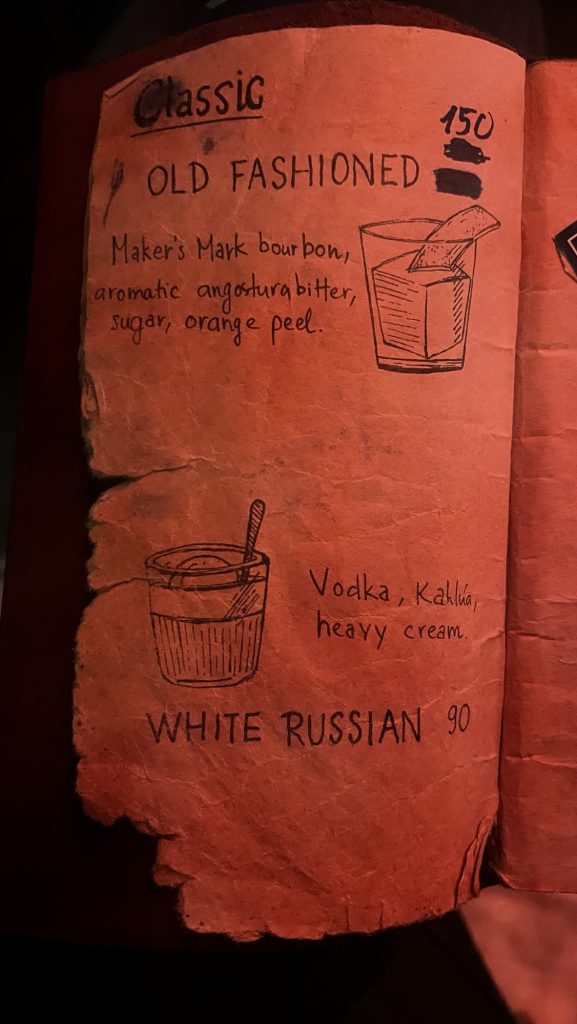 Classic
150
OLD FASHIONED
Maker's Mark bourbon,
aromatic angostura bitter,
sugar, orange peel.
Vodka, Kahlúa,
heavy cream.
WHITE RUSSIAN 90